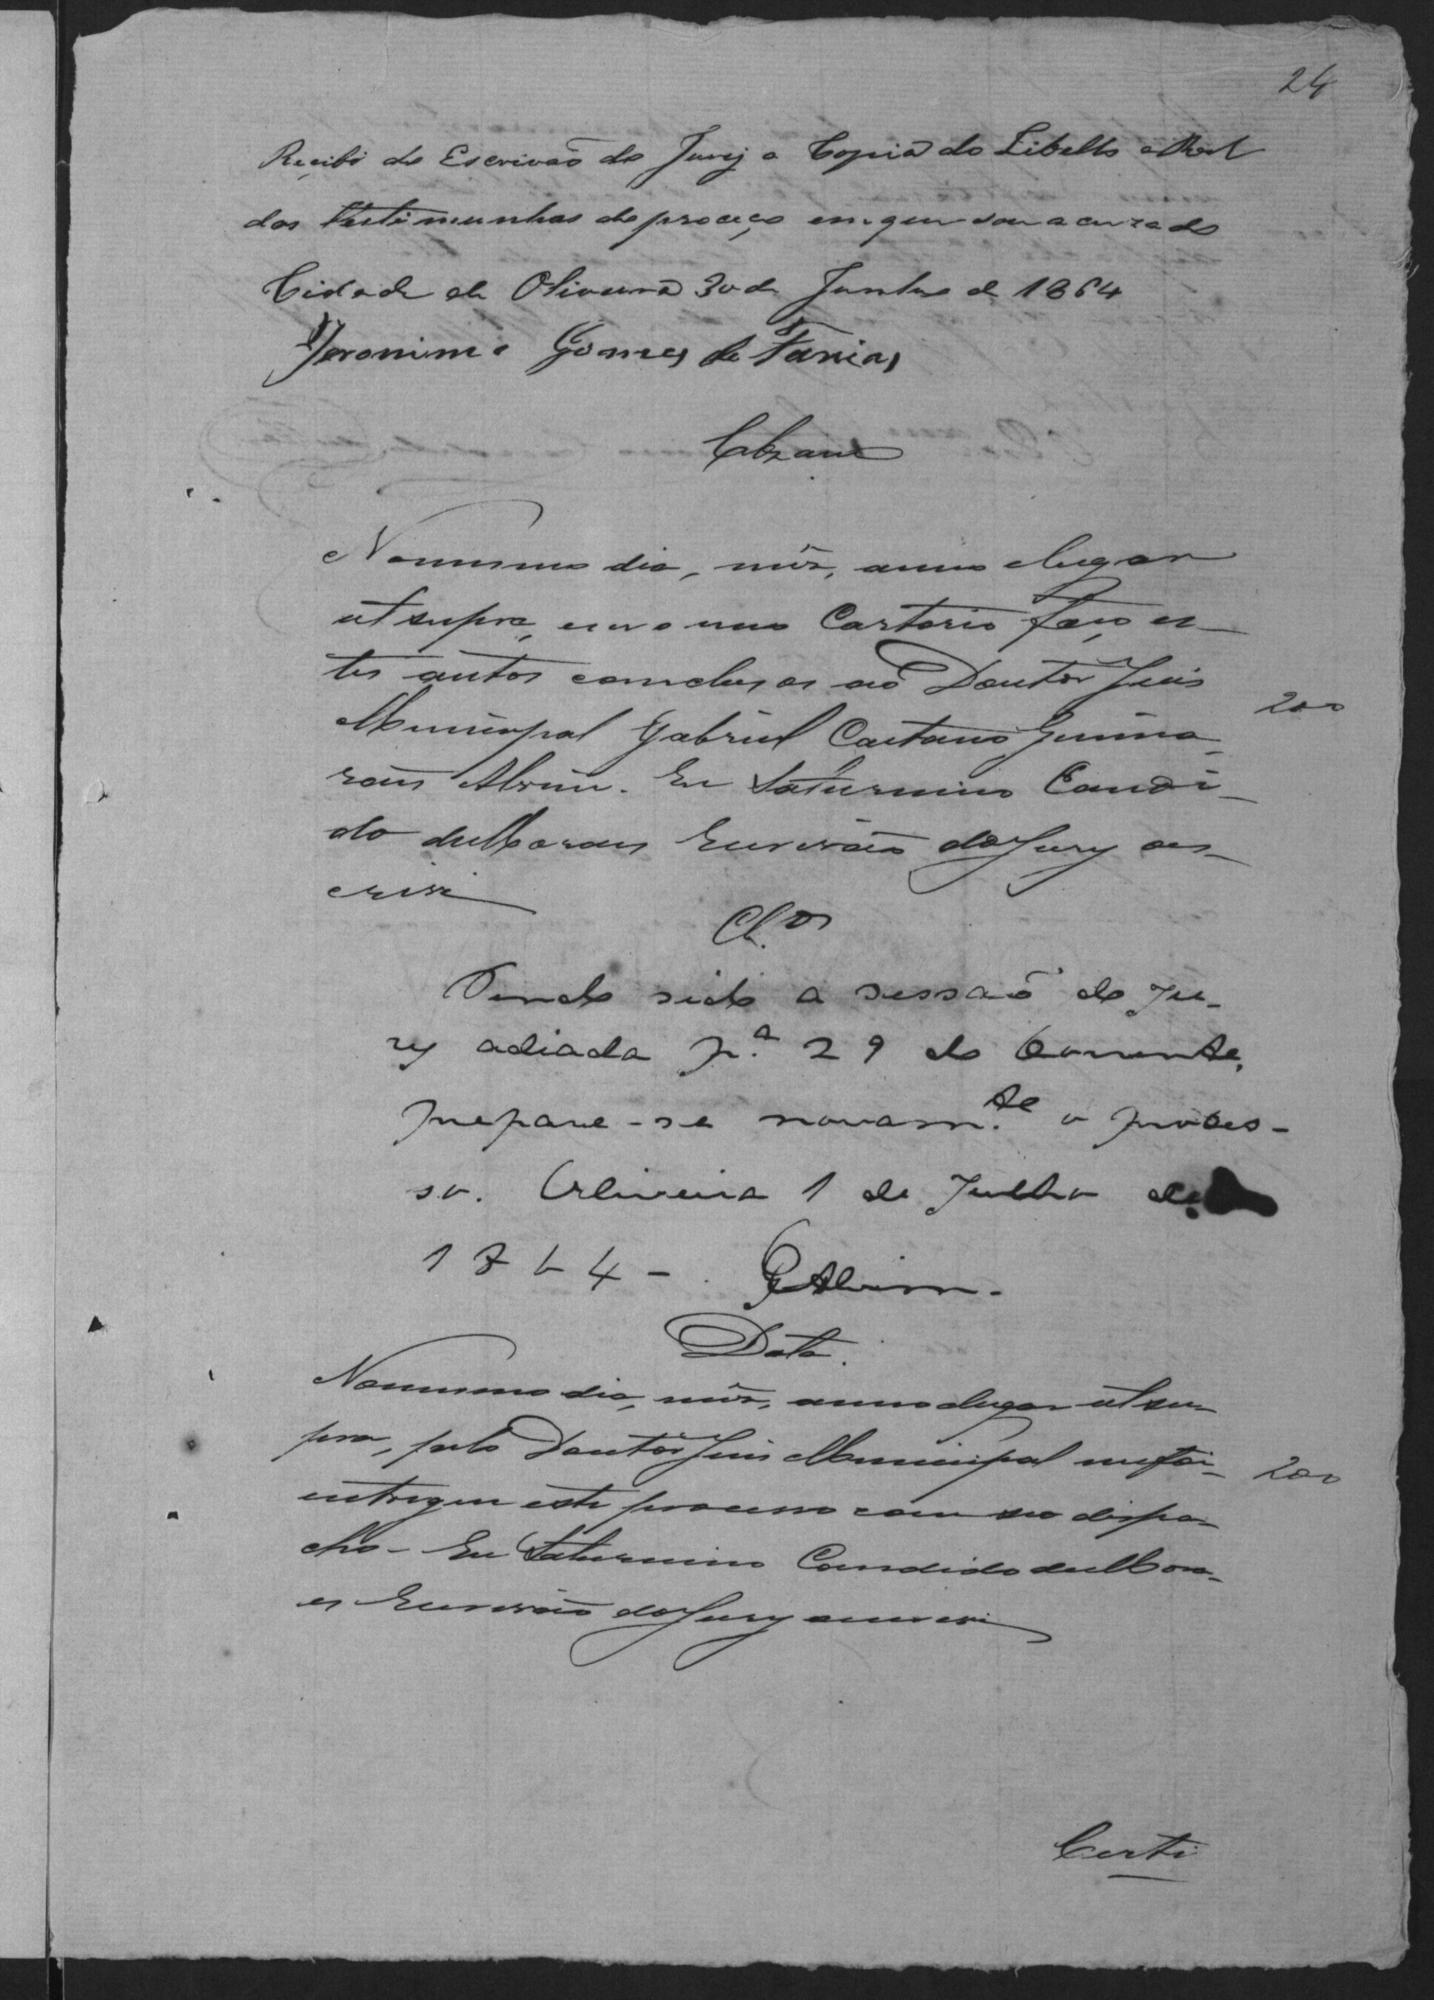 24
Recibi do Escrivaõ do Jury a Copia do Libello e Rol
das Testimunhas do proceço em que sou acuzado
Cidade de Oliveira 30 de Junho de 1864
Jeronimo Gomes de Farias
Clzam
No mesmo dia, mês, anno e lugar
ut supra, em o meo Cartorio faço es-
tes autos conclusos ao Doutor Juis
Municipal Gabriel Caetano Guima-
200
rães Alvim. Eu Saturnino Candi-
do de Moraes Escrivão do Jury o es-
crivi
Cl.os
Tendo sido a sessaõ do Ju-
ry adiada p.a 29 do Corrente,
prepare-se novam.te o proces-
so. Oliveira 1 de Julho de
1864 - GAlvim.
Data.
No mesmo dia, mês, anno e lugar ut su-
pra, pelo Doutor Juis Municipal me foi
200
entregue este processo com seo despa-
cho - Eu Saturnino Candido de Mora-
es Escrivão do Jury o escrevi
Certi